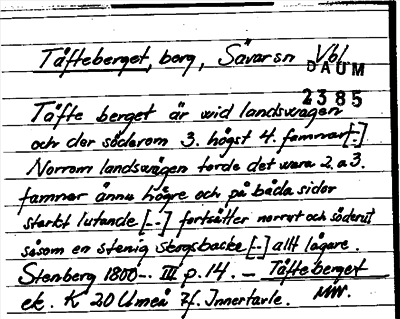 Täfteberget, berg, Sävar sn Vbl
DAUM
2385
Täfte berget är wid landswägen
och der söderom 3. högst 4. famnar[-]
Norrom landswägen torde det wara 2. a 3.
famnar ännu högre och på båda sidor
starkt lutande [--] fortsätter norrut och söderut
såsom en stenig skogsbacke [-] allt lägare.
Stenberg 1800-. III p. 14. — Täfteberget
ek. K 20 Umeå 7f. Innertavle.